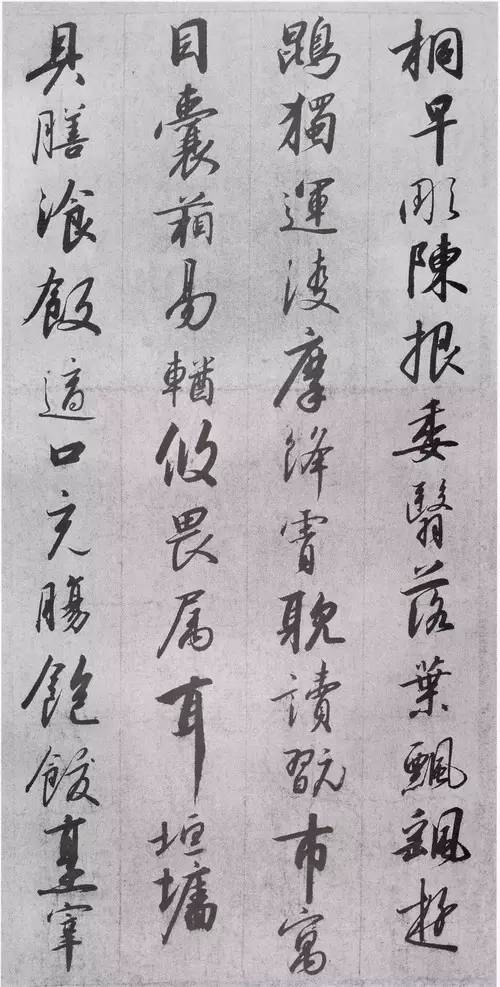 桐早彫陳根委翳落葉飄颻遊
鵾獨運淩摩絳霄耽讀翫市寓
目囊箱易輶攸畏属耳垣墻
具膳湌飯適口充膓飽飫烹宰